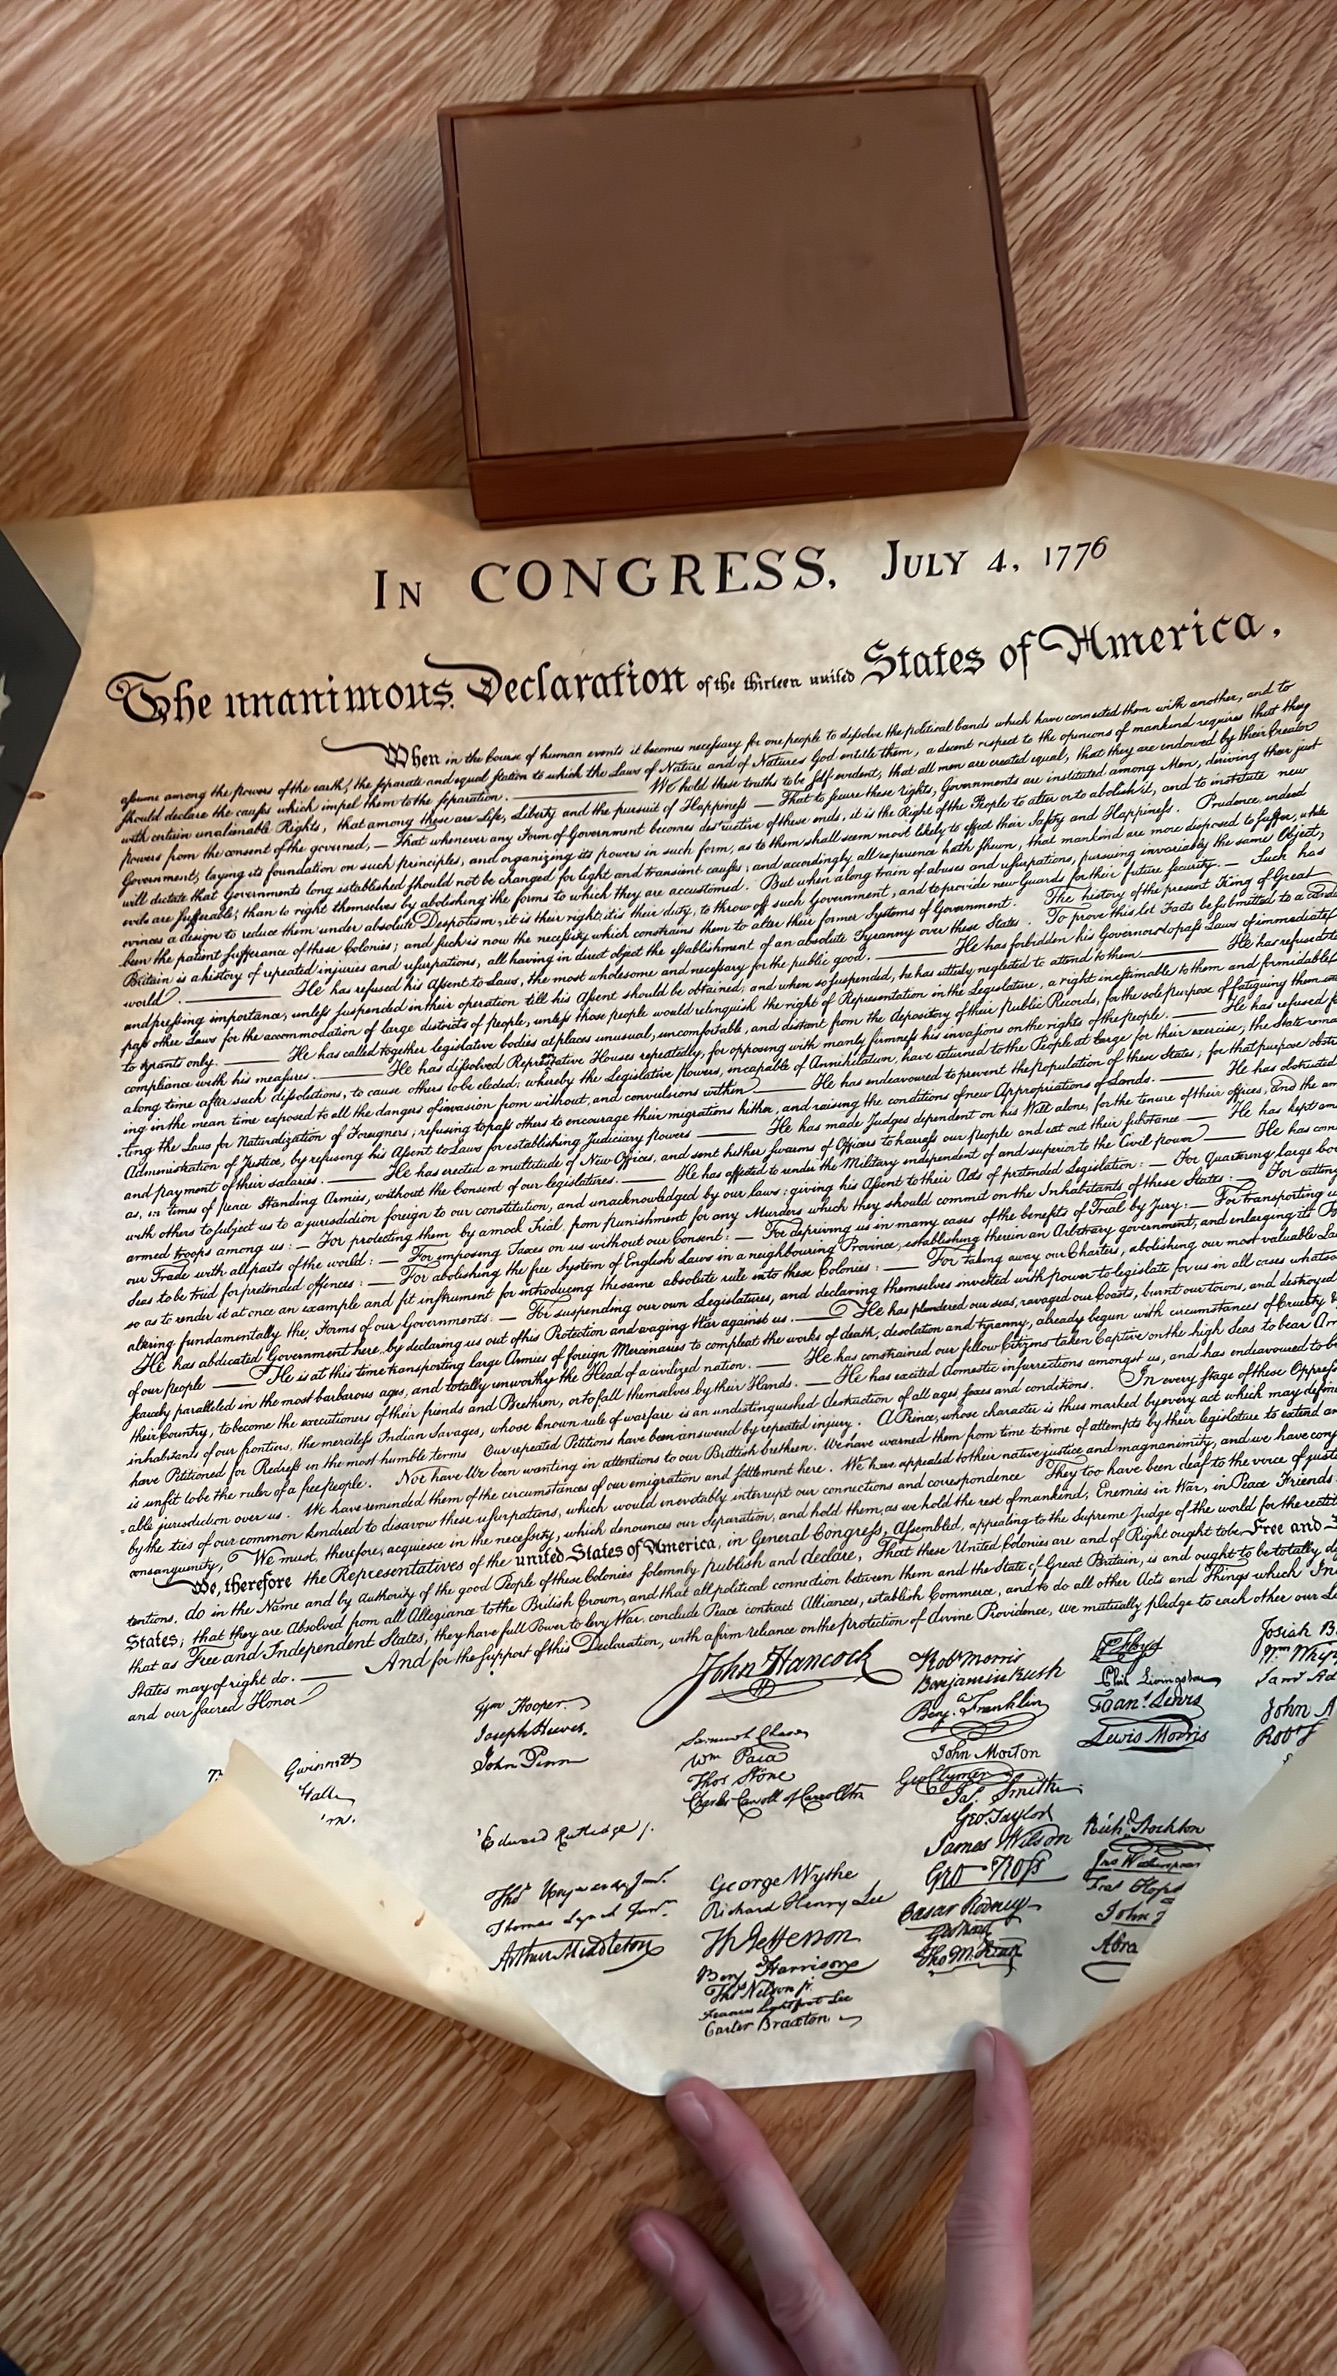 IN CONGRESS, JULY 4, 1776
The unanimous Declaration of the thirteen united States of America,
When in the Course of human events it becomes necessary for one people to dissolve the political bands which have connected them with another, and to
assume among the powers of the earth, the separate and equal station to which the Laws of Nature and of Natures God entitle them, a decent respect to the opinions of mankind requires that they
should declare the causes which impel them to the separation. ——— We hold these truths to be self evident, that all men are created equal, that they are endowed by their Creator
with certain unalienable Rights, that among these are Life, Liberty and the pursuit of Happiness — That to secure these rights, Governments are instituted among Men, deriving their just
powers from the consent of the governed, — That whenever any Form of Government becomes destructive of these ends, it is the Right of the People to alter or to abolish it, and to institute new
Government, laying its foundation on such principles, and organizing its powers in such form, as to them shall seem most likely to effect their Safety and Happiness. Prudence, indeed
will dictate that Governments long established should not be changed for light and transient causes; and accordingly all experience hath shewn, that mankind are more disposed to suffer, while
evils are sufferable, than to right themselves by abolishing the forms to which they are accustomed. But when a long train of abuses and usurpations, pursuing invariably the same Object,
evinces a design to reduce them under absolute Despotism, it is their right, it is their duty, to throw off such Government, and to provide new Guards for their future security. — Such has
been the patient sufferance of these Colonies; and such is now the necessity which constrains them to alter their former Systems of Government. The history of the present King of Great
Britain is a history of repeated injuries and usurpations, all having in direct object the establishment of an absolute Tyranny over these States To prove this let Facts be submitted to a candid
world. ——— He has refused his Assent to Laws, the most wholesome and necessary for the public good. ——— He has forbidden his Governors to pass Laws of immediate
and pressing importance, unless suspended in their operation till his Assent should be obtained; and when so suspended, he has utterly neglected to attend to them ——— He has refused to
pass other Laws for the accommodation of large districts of people, unless those people would relinquish the right of Representation in the Legislature, a right inestimable to them and formidable
to tyrants only. ——— He has called together legislative bodies at places unusual, uncomfortable, and distant from the depository of their Public Records, for the sole purpose of fatiguing them
compliance with his measures ——— He has dissolved Representative Houses repeatedly, for opposing with manly firmness his invasions on the rights of the people. ——— He has refused
along time after such dissolutions, to cause others to be elected; whereby the Legislative powers, incapable of Annihilation, have returned to the People at large for their exercise, the State rema
ing in the mean time exposed to all the dangers of invasion from without, and convulsions within ——— He has endeavoured to prevent the population of these States; for that purpose obstr
-ting the Laws for Naturalization of Foreigners; refusing to pass others to encourage their migrations hither, and raising the conditions of new Appropriations of Lands. ——— He has obstructed
Administration of Justice, by refusing his Assent to Laws for establishing Judiciary powers ——— He has made Judges dependent on his Will alone, for the tenure of their offices, and the am
and payment of their salaries. ——— He has erected a multitude of New Offices, and sent hither swarms of Officers to harrass our People and eat out their substance ——— He has kept am
us, in times of peace Standing Armies, without the Consent of our legislatures. ——— He has affected to render the Military independent of and superior to the Civil power ——— He has com
with others to subject us to a jurisdiction foreign to our constitution, and unacknowledged by our laws; giving his Assent to their Acts of pretended Legislation: — For quartering large bo
armed troops among us: — For protecting them by a mock Trial, from punishment for any Murders which they should commit on the Inhabitants of these States: — For cutting
our Trade with all parts of the world: — For imposing Taxes on us without our Consent: — For depriving us in many cases of the benefits of Trial by Jury: — For transporting us
Seas to be tried for pretended offences: — For abolishing the free System of English Laws in a neighbouring Province, establishing therein an Arbitrary government, and enlarging its
so as to render it at once an example and fit instrument for introducing the same absolute rule into these Colonies: — For taking away our Charters, abolishing our most valuable La
altering fundamentally the Forms of our Governments: — For suspending our own Legislatures, and declaring themselves invested with power to legislate for us in all cases whatso
He has abdicated Government here, by declaring us out of his Protection and waging War against us. ——— He has plundered our seas, ravaged our Coasts, burnt our towns, and destroyed
of our people ——— He is at this time transporting large Armies of foreign Mercenaries to compleat the works of death, desolation and tyranny, already begun with circumstances of Cruelty &
scarcely paralleled in the most barbarous ages, and totally unworthy the Head of a civilized nation. — He has constrained our fellow Citizens taken Captive on the high Seas to bear Ar
their Country, to become the executioners of their friends and Brethren, or to fall themselves by their Hands. — He has excited domestic insurrections amongst us, and has endeavoured to b
inhabitants of our frontiers, the merciless Indian Savages, whose known rule of warfare is an undistinguished destruction of all ages, sexes and conditions. In every stage of these Oppress
have Petitioned for Redress in the most humble terms Our repeated Petitions have been answered by repeated injury. A Prince, whose character is thus marked by every act which may define
is unfit to be the ruler of a free people. Nor have We been wanting in attentions to our Brittish brethren. We have warned them from time to time of attempts by their legislature to extend an
-able jurisdiction over us. We have reminded them of the circumstances of our emigration and settlement here. We have appealed to their native justice and magnanimity, and we have conj
by the ties of our common kindred to disavow these usurpations, which would inevitably interrupt our connections and correspondence They too have been deaf to the voice of justi
consanguinity, We must, therefore, acquiesce in the necessity, which denounces our Separation, and hold them, as we hold the rest of mankind, Enemies in War, in Peace Friends.
We, therefore the Representatives of the united States of America, in General Congress, Assembled, appealing to the Supreme Judge of the world for the recti
tentions, do in the Name and by Authority of the good People of these Colonies solemnly publish and declare, That these United Colonies are and of Right ought to be Free and
States; that they are Absolved from all Allegiance to the British Crown, and that all political connection between them and the State of Great Britain, is and ought to be totally di
that as Free and Independent States, they have full Power to levy War, conclude Peace contract Alliances, establish Commerce, and to do all other Acts and Things which In
States may of right do. ——— And for the support of this Declaration, with a firm reliance on the Protection of divine Providence, we mutually pledge to each other our L
and our sacred Honor
John Hancock
Gwinnett
Hall
Wm Hooper
Joseph Hewes,
John Penn
Edward Rutledge /.
Thos Heyward Junr.
Thomas Lynch Junr.
Arthur Middleton
Samuel Chase
Wm Paca
Thos Stone
Charles Carroll of Carrollton
George Wythe
Richard Henry Lee
Th Jefferson
Benj Harrison
Thos Nelson jr.
Francis Lightfoot Lee
Carter Braxton
Robt Morris
Benjamin Rush
Benj. Franklin
John Morton
Geo Clymer
Jas. Smith
Geo. Taylor
James Wilson
Geo. Ross
Caesar Rodney
Geo Read
Tho M:Kean
Phil Livingston
Frans. Lewis
Lewis Morris
Richd. Stockton
Jno Witherspoon
Fras Hopk
John
Abra
Josiah B
Wm Whip
Saml Ad
John A
Robt